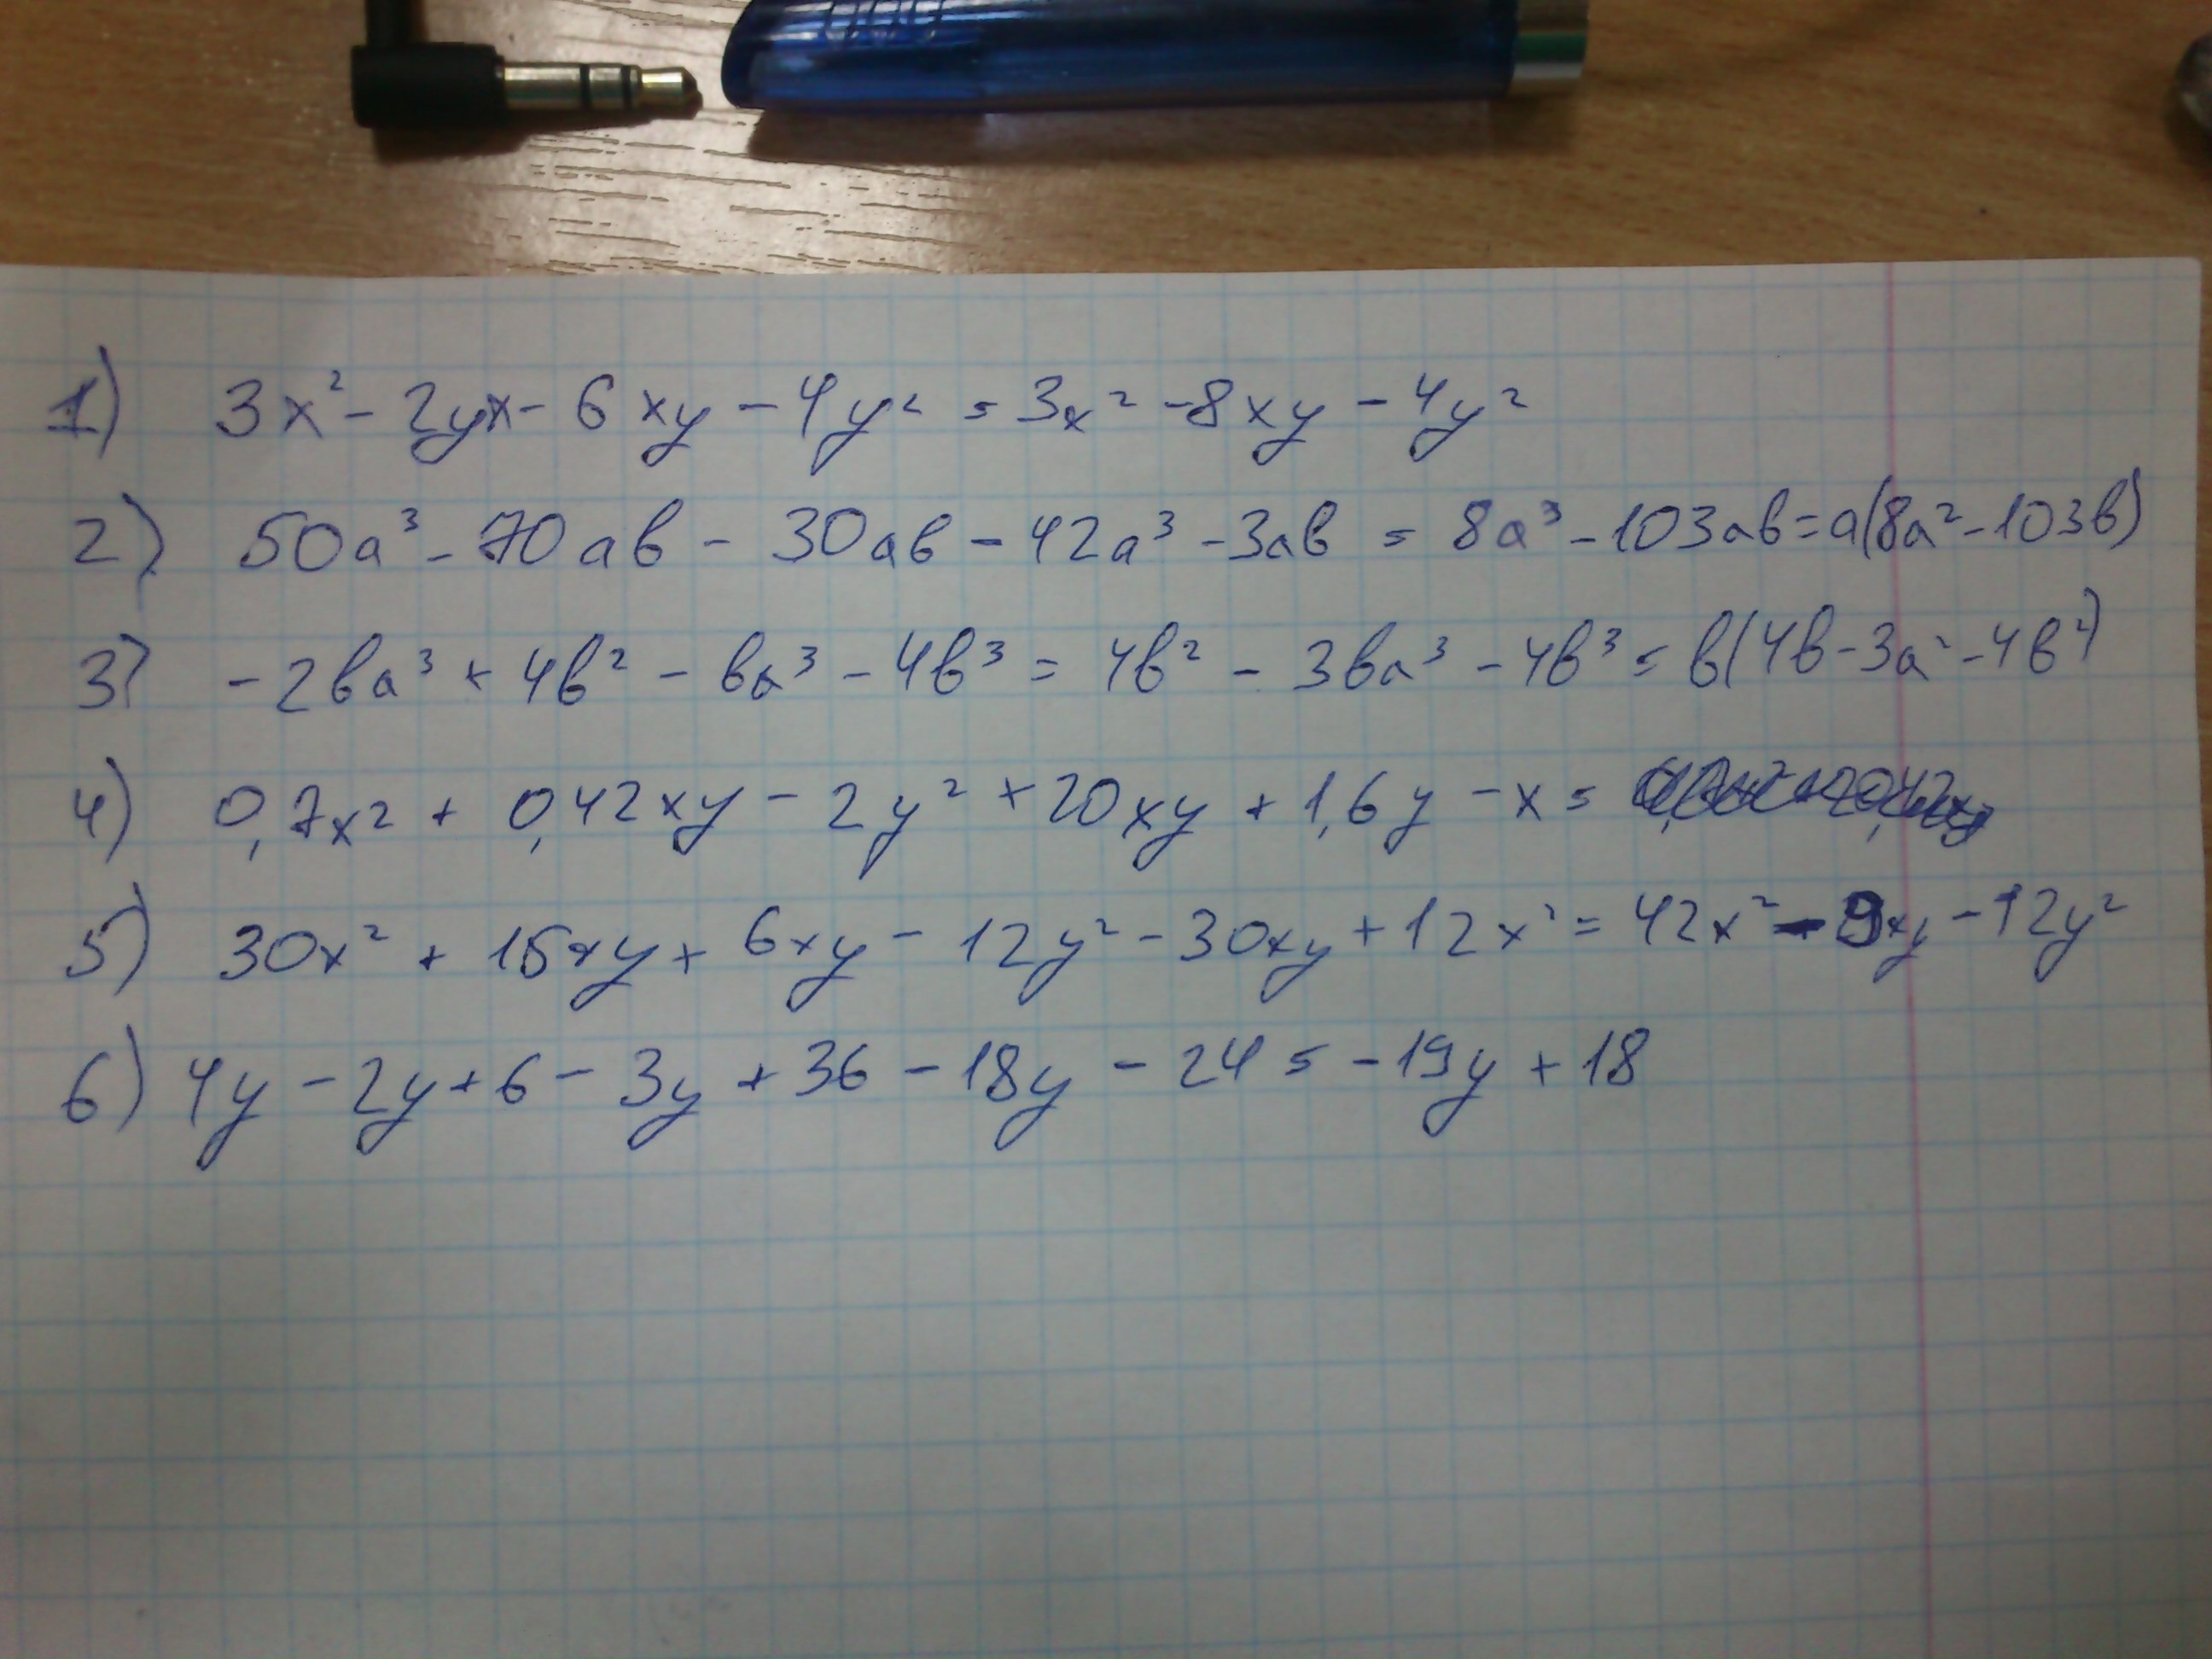 1) 3x² - 2yx - 6xy - 4y² = 3x² - 8xy - 4y²
2) 50a³ - 70ab - 30ab - 42a³ - 3ab = 8a³ - 103ab = a(8a² - 103b)
3) -2ba³ + 4b² - ba³ - 4b³ = 4b² - 3ba³ - 4b³ = b(4b - 3a² - 4b²)
4) 0,7x² + 0,42xy - 2y² + 20xy + 1,6y - x =
5) 30x² + 15xy + 6xy - 12y² - 30xy + 12x² = 42x² - 9xy - 12y²
6) 4y - 2y + 6 - 3y + 36 - 18y - 24 = -19y + 18